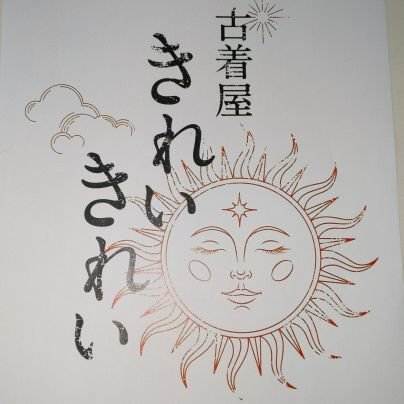 古着屋
きれい
きれい